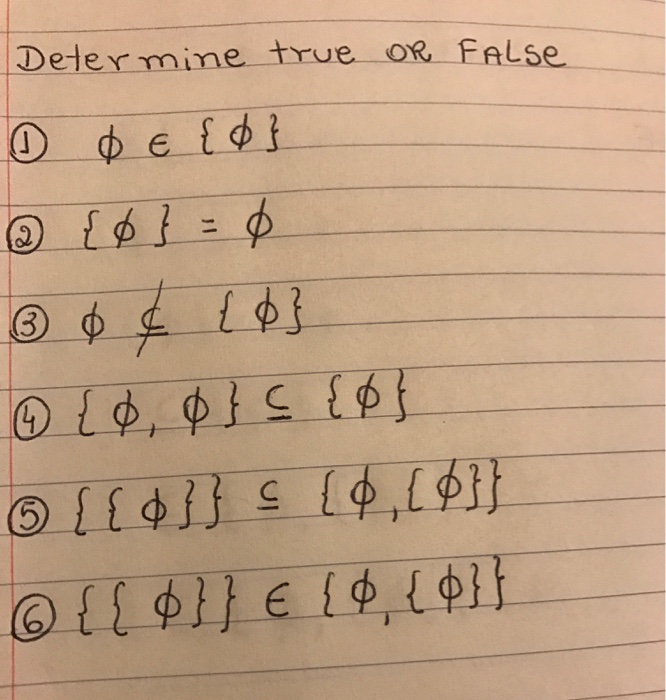 Determine true OR FALSe
① ϕ ∈ {ϕ}
② {ϕ} = ϕ
③ ϕ ⊈ {ϕ}
④ {ϕ, ϕ} ⊆ {ϕ}
⑤ {{ϕ}} ⊆ {ϕ,{ϕ}}
⑥ {{ϕ}} ∈ {ϕ,{ϕ}}